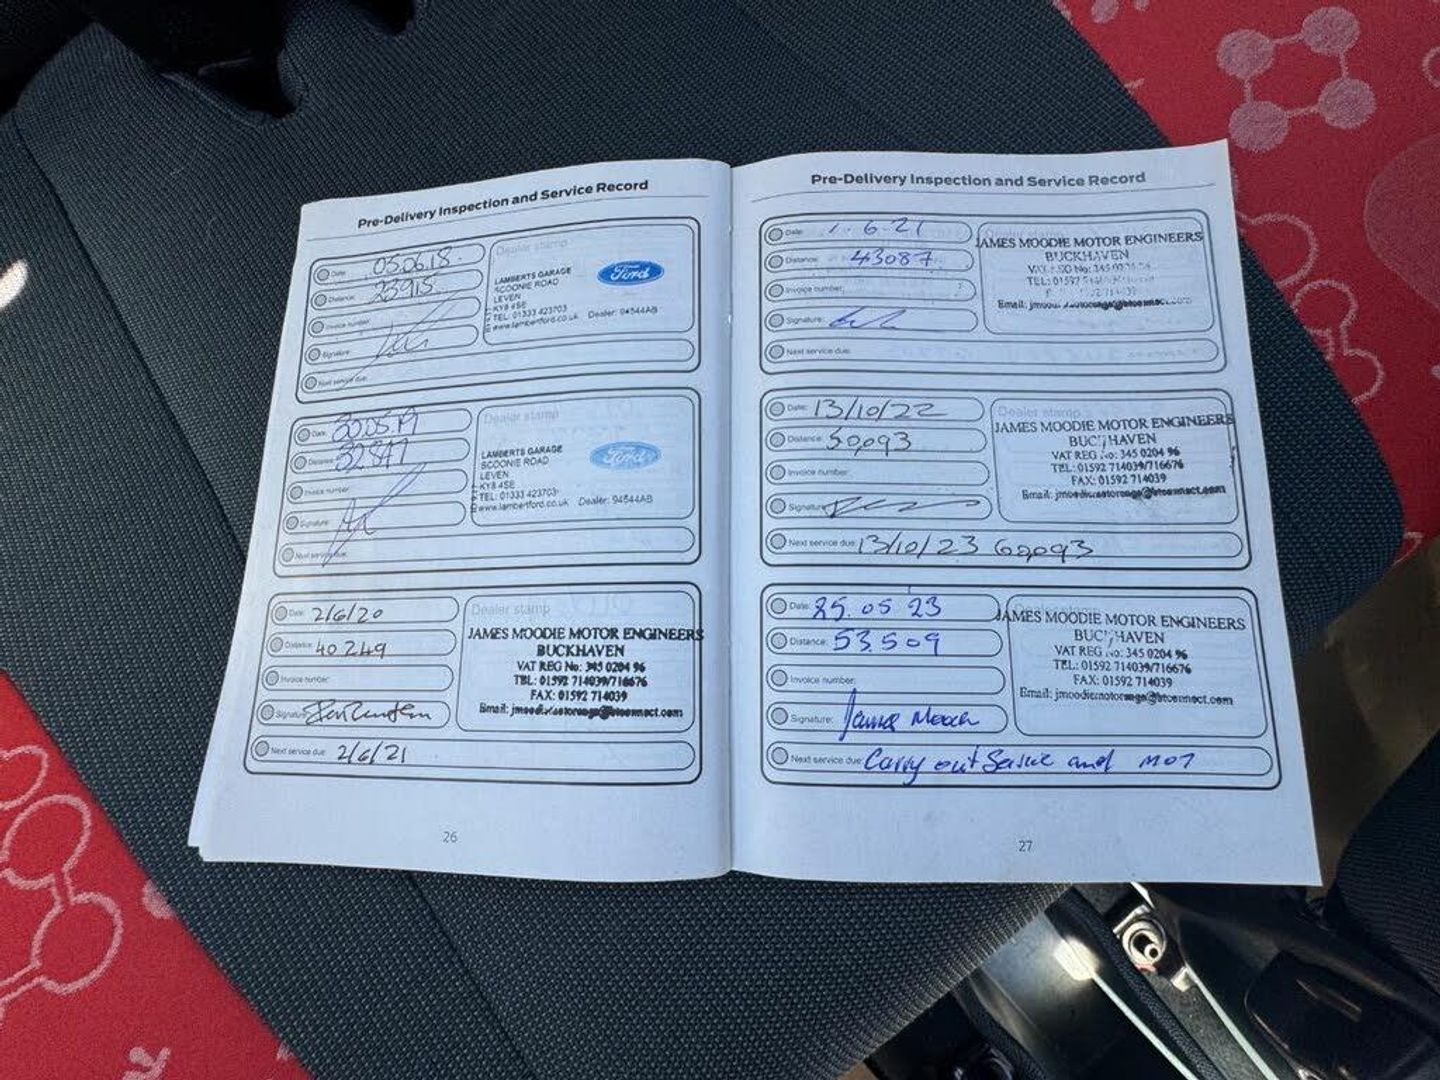 Pre-Delivery Inspection and Service Record
Date: 05.06.18.
Distance: 23915
Invoice number:
Signature:
Next service due:
Dealer stamp
LAMBERTS GARAGE
SCOONIE ROAD
LEVEN
KY8 4SE
TEL: 01333 423703
www.lambertford.co.uk Dealer: 94544AB
Ford
Date: 30.05.19
Distance: 32847
Invoice number:
Signature:
Next service due:
Dealer stamp
LAMBERTS GARAGE
SCOONIE ROAD
LEVEN
KY8 4SE
TEL: 01333 423703
www.lambertford.co.uk Dealer: 94544AB
Ford
Date: 2/6/20
Distance: 40249
Invoice number:
Signature:
Next service due: 2/6/21
Dealer stamp
JAMES MOODIE MOTOR ENGINEERS
BUCKHAVEN
VAT REG No: 345 0204 96
TEL: 01592 714039/716676
FAX: 01592 714039
Email:
26
Pre-Delivery Inspection and Service Record
Date: 1.6.21
Distance: 43087
Invoice number:
Signature:
Next service due:
Dealer stamp
JAMES MOODIE MOTOR ENGINEERS
BUCKHAVEN
VAT REG No: 345
TEL: 01592
Email:
Date: 13/10/22
Distance: 50,093
Invoice number:
Signature:
Next service due: 13/10/23 60,093
Dealer stamp
JAMES MOODIE MOTOR ENGINEERS
BUCKHAVEN
VAT REG No: 345 0204 96
TEL: 01592 714039/716676
FAX: 01592 714039
Email:
Date: 25.05 23
Distance: 53509
Invoice number:
Signature: James
Next service due: Carry out Service and MOT
Dealer stamp
JAMES MOODIE MOTOR ENGINEERS
BUCKHAVEN
VAT REG No: 345 0204 96
TEL: 01592 714039/716676
FAX: 01592 714039
Email:
27